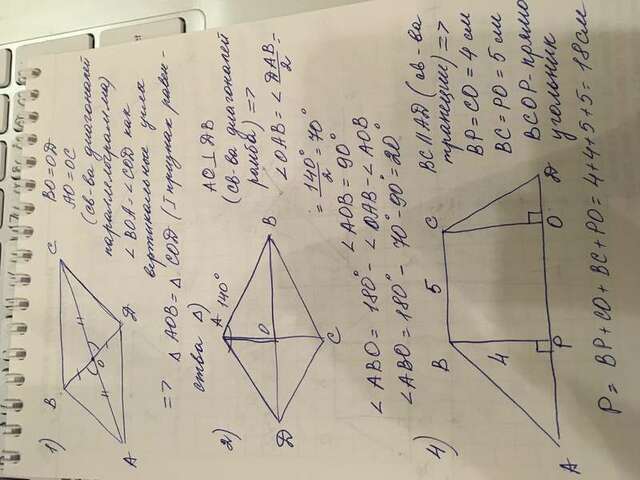 1)
B C
O
A D
BO=OD
AO=OC
(св-ва диагоналей
параллелограмма)
∠BOA=∠COD как
вертикальные углы
=> △AOB=△COD (I признак равен-
ства △)
2)
A 140°
D O B
C
AO⊥DB
(св-ва диагоналей
ромба) =>
∠OAB = ∠DAB/2 =
= 140°/2 = 70°
∠AOB = 90°
∠ABO = 180° - ∠OAB - ∠AOB
∠ABO = 180° - 70° - 90° = 20°
4)
B 5 C
4
A P O D
BC||AD (св-ва
трапеции) =>
BP=CO=4 см
BC=PO=5 см
BCOP-прямо
угольник
P= BP+CO+BC+PO=4+4+5+5=18см